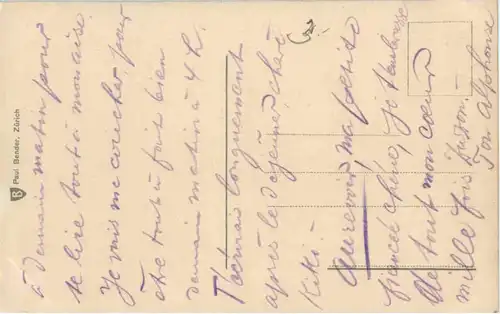 à demain matin pour
te lire tout à mon aise.
Je vais me coucher, pour
être tout à fait bien
demain matin à 4 h.
T'écrirai longuement
après le déjeuner, chat
Kiki.
Aurevoir, ma petite
fiancée chérie, je t'embrasse
de tout mon cœur
mille fois
Ton Alphonse
Paul Bender, Zürich
B